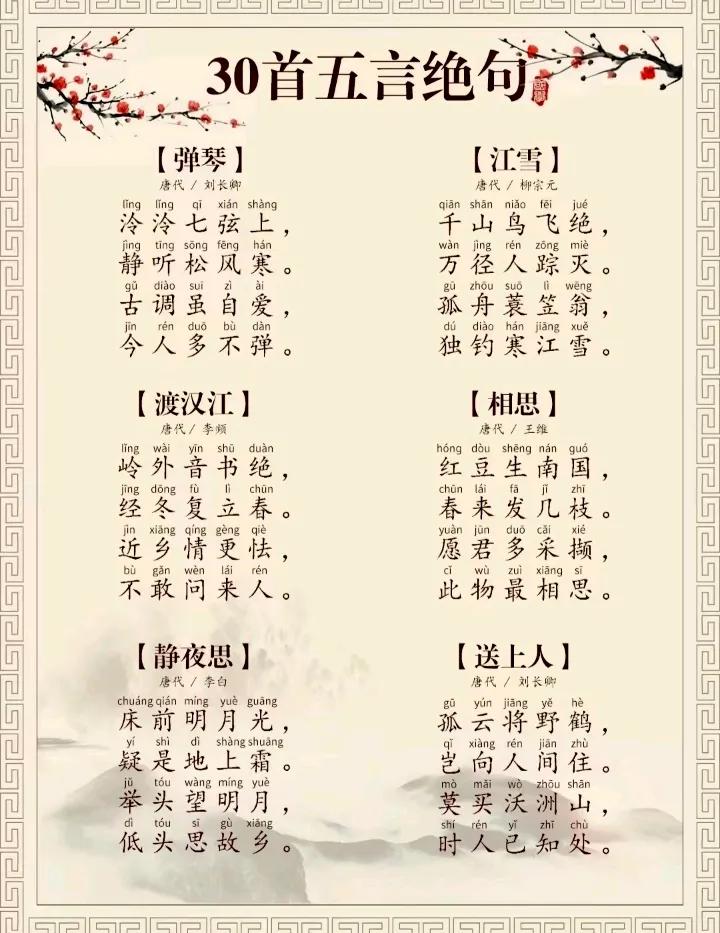 30首五言绝句
【弹琴】
唐代 / 刘长卿
líng líng qī xián shàng
泠泠七弦上，
jìng tīng sōng fēng hán
静听松风寒。
gǔ diào suī zì ài
古调虽自爱，
jīn rén duō bù dàn
今人多不弹。
【江雪】
唐代 / 柳宗元
qiān shān niǎo fēi jué
千山鸟飞绝，
wàn jìng rén zōng miè
万径人踪灭。
gū zhōu suō lì wēng
孤舟蓑笠翁，
dú diào hán jiāng xuě
独钓寒江雪。
【渡汉江】
唐代 / 李频
lǐng wài yīn shū duàn
岭外音书绝，
jīng dōng fù lì chūn
经冬复立春。
jìn xiāng qíng gèng qiè
近乡情更怯，
bù gǎn wèn lái rén
不敢问来人。
【相思】
唐代 / 王维
hóng dòu shēng nán guó
红豆生南国，
chūn lái fā jǐ zhī
春来发几枝。
yuàn jūn duō cǎi xié
愿君多采撷，
cǐ wù zuì xiāng sī
此物最相思。
【静夜思】
唐代 / 李白
chuáng qián míng yuè guāng
床前明月光，
yí shì dì shàng shuāng
疑是地上霜。
jǔ tóu wàng míng yuè
举头望明月，
dī tóu sī gù xiāng
低头思故乡。
【送上人】
唐代 / 刘长卿
gū yún jiāng yě hè
孤云将野鹤，
qǐ xiàng rén jiān zhù
岂向人间住。
mò mǎi wò zhōu shān
莫买沃洲山，
shí rén yǐ zhī chù
时人已知处。